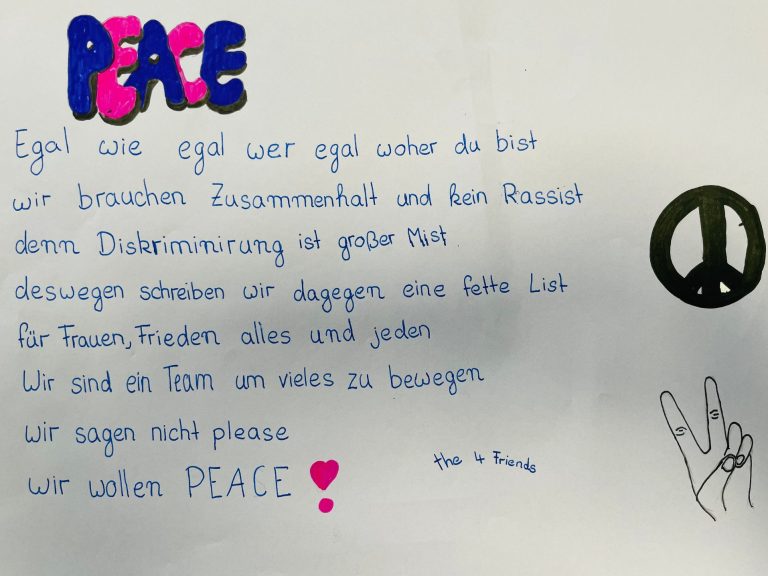 PEACE
Egal wie egal wer egal woher du bist
wir brauchen Zusammenhalt und kein Rassist
denn Diskriminirung ist großer Mist
deswegen schreiben wir dagegen eine fette List
für Frauen, Frieden alles und jeden
Wir sind ein Team um vieles zu bewegen
wir sagen nicht please
wir wollen PEACE!
the 4 Friends